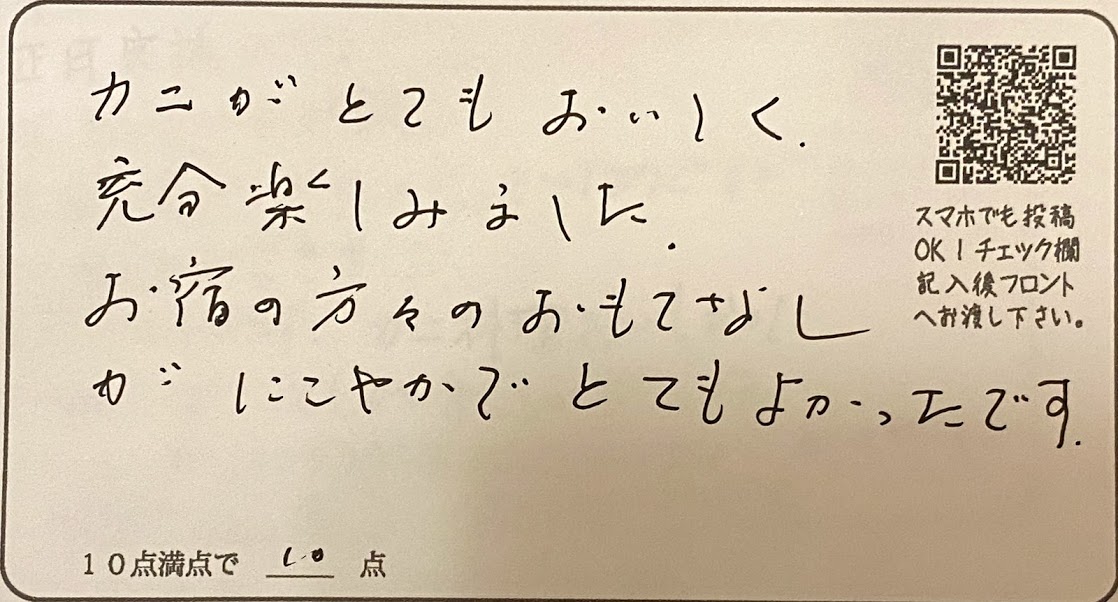 カニがとてもおいしく.
充分楽しみました.
お宿の方々のおもてなし
がにこやかでとてもよかったです.
スマホでも投稿
OK！チェック欄
記入後フロント
へお渡し下さい。
10点満点で 10 点